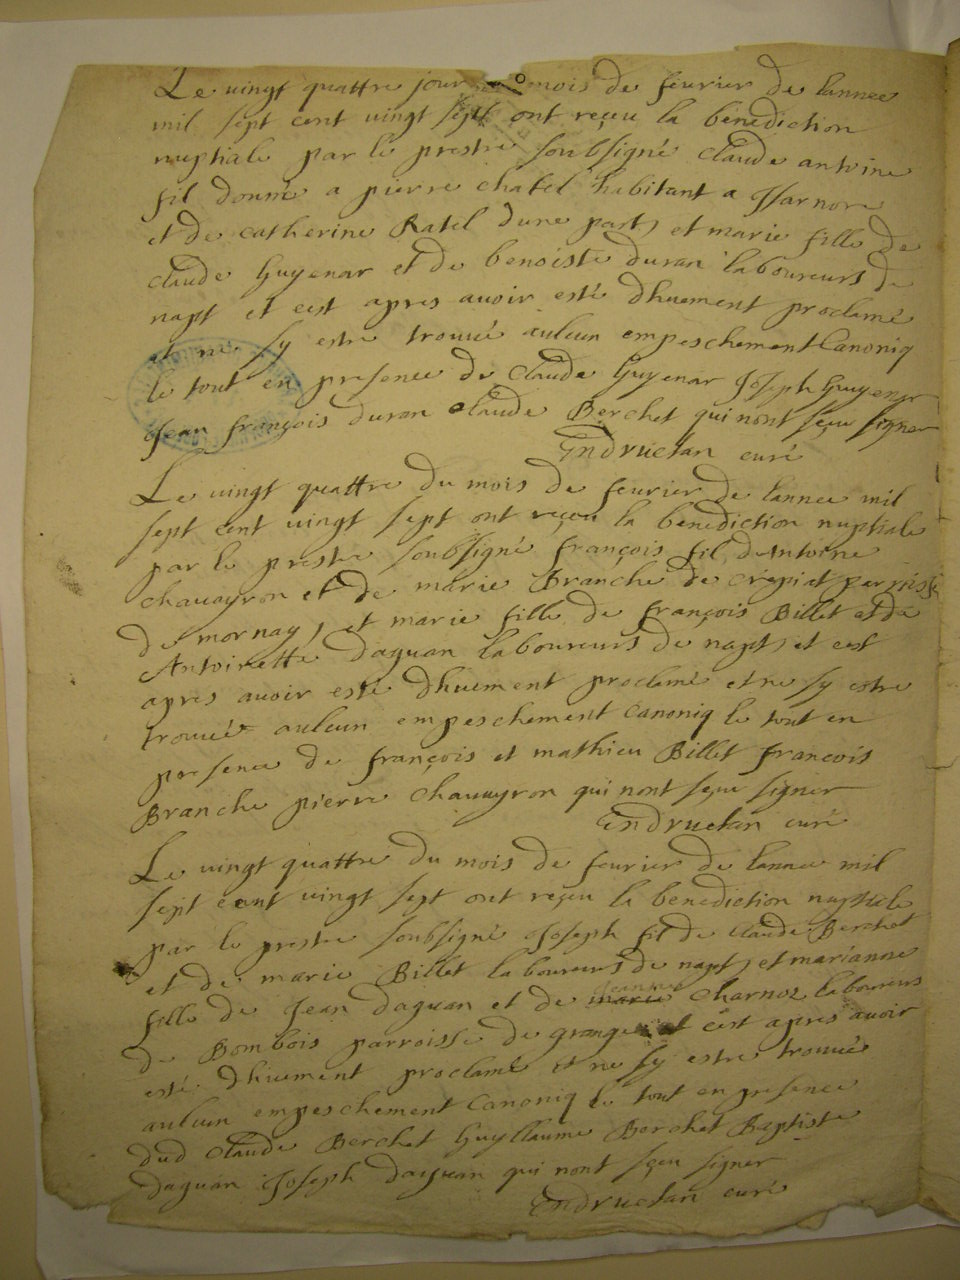 Le vingt quattre jour mois de feurier de lannee
mil sept cent vingt sept ont reçeu la benediction
nuptiale par le prestre soubsigné Claude antoine
fil donné a pierre chatel habitant a Jsarnore
et de catherine Ratel dune part, et marie fille de
claude Guyenar et de benoiste duran laboureurs de
napt et cest apres auoir esté dhuement proclamé
et ne sy estre trouué aulcun empeschement Canoniq
le tout en presence de Claude Guyenar Joseph Guyenar
Jean françois duran Claude Berchet qui nont sçeu signer
Endruetan curé
Le vingt quattre du mois de feurier de lannee mil
sept cent vingt sept ont reçeu la benediction nuptiale
par le prestre soubsigné françois fil dAntoine
chauayron et de marie Branche de crepiat
de mornay, et marie fille de françois Billet et de
Antoinette daguan laboureurs de napt, et cest
apres auoir esté dhuement proclamé et ne sy estre
trouué aulcun empeschement Canoniq le tout en
presence de françois et mathieu Billet francois
Branche pierre Chauuyron qui nont sçeu signer
Endruetan curé
Le vingt quattre du mois de feurier de lannee mil
sept cent vingt sept ont reçeu la benediction nuptiale
par le prestre soubsigné Joseph fil de Claude Berchet
et de marie Billet laboureurs de napt, et marianne
Jeanne
fille de Jean daguan et de marie Charnoz laboureurs
de Bombois parroisse de granges et cest apres auoir
esté dhuement proclamé et ne sy estre trouué
aulcun empeschement Canoniq le tout en presence
dud Claude Berchet Guyllaume Berchet Baptiste
daguan Joseph daguan qui nont sçeu signer
Endruetan curé